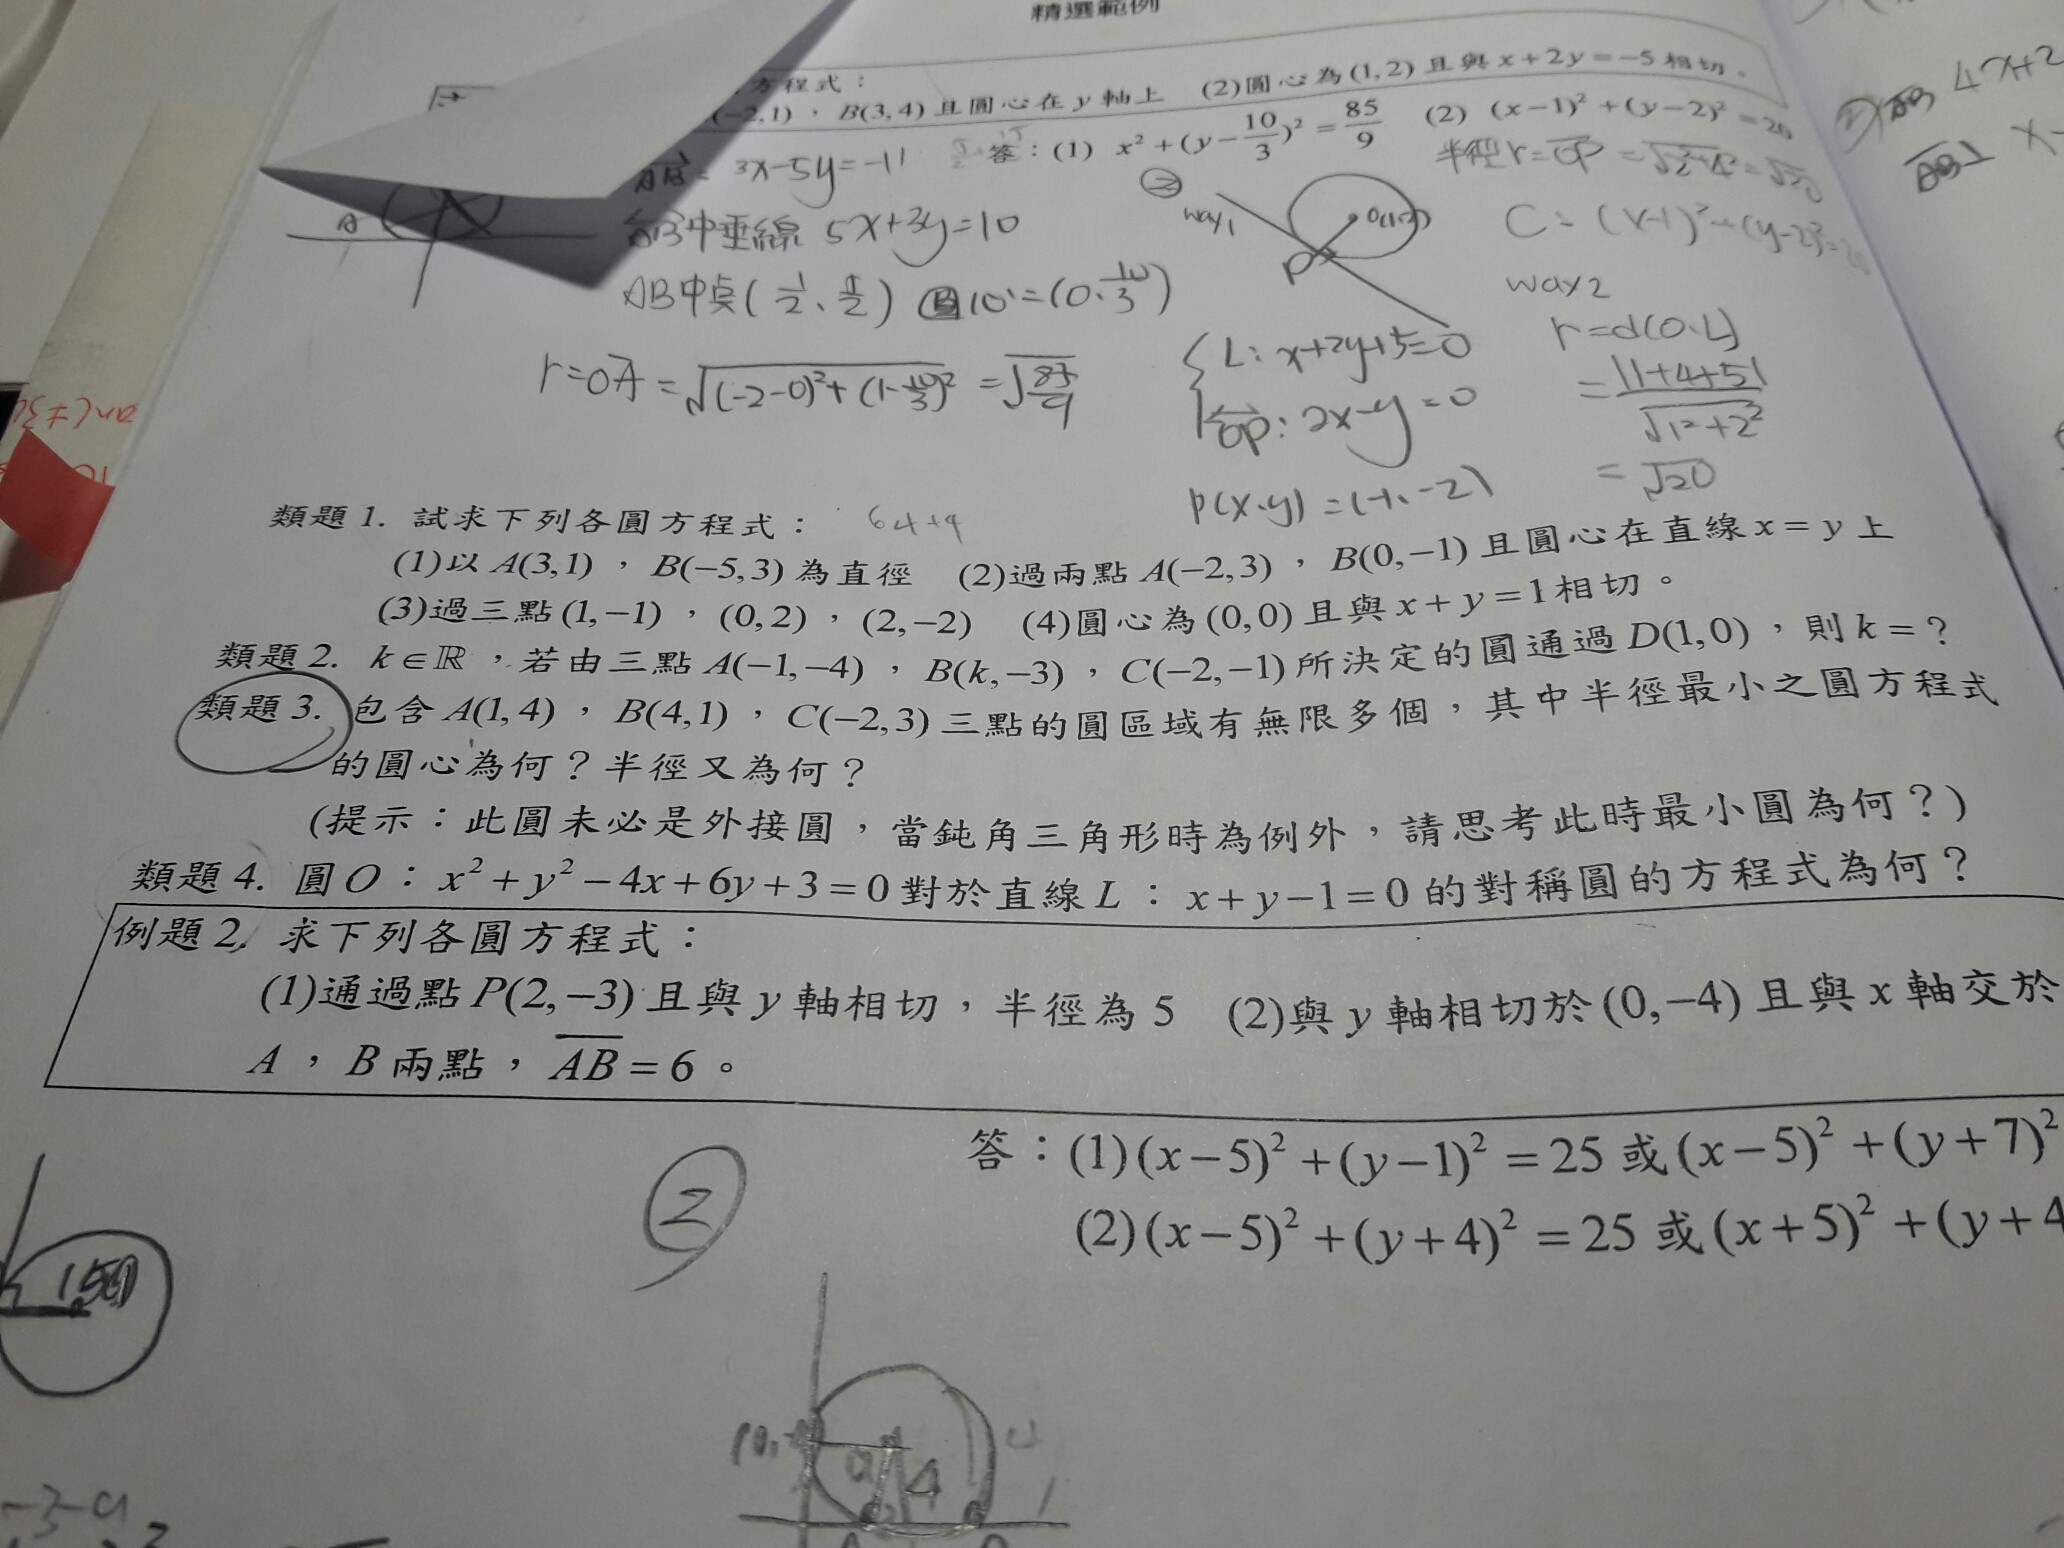 精選範例
方程式：
(-2,1)，B(3,4)且圓心在 y 軸上 (2)圓心為(1,2)且與 x+2y=-5 相切。
答：(1) x²+(y-10/3)²=85/9 (2) (x-1)²+(y-2)²=20
3x-5y=-11
中垂線 5x+3y=10
AB中点(1/2、5/2) 圓心O'=(0、10/3)
r=OA=√((-2-0)²+(1-10/3)²)=√(85/9)
②
way1
O(1,2)
P
{L: x+2y+5=0
OP: 2x-y=0
P(x、y)=(-1、-2)
半徑r=OP=√(2²+4²)=√20
C=(x-1)²+(y-2)²=20
way2
r=d(O、L)
=|1+4+5|/√(1²+2²)
=√20
4x+2
AB⊥ x-
類題1. 試求下列各圓方程式： 64+4
(1)以 A(3,1)，B(-5,3)為直徑 (2)過兩點 A(-2,3)，B(0,-1)且圓心在直線 x=y 上
(3)過三點(1,-1)，(0,2)，(2,-2) (4)圓心為(0,0)且與 x+y=1相切。
類題2. k∈ℝ，若由三點 A(-1,-4)，B(k,-3)，C(-2,-1)所決定的圓通過 D(1,0)，則 k=？
類題3. 包含 A(1,4)，B(4,1)，C(-2,3)三點的圓區域有無限多個，其中半徑最小之圓方程式
的圓心為何？半徑又為何？
(提示：此圓未必是外接圓，當鈍角三角形時為例外，請思考此時最小圓為何？)
類題4. 圓O：x²+y²-4x+6y+3=0對於直線L：x+y-1=0的對稱圓的方程式為何？
例題2. 求下列各圓方程式：
(1)通過點 P(2,-3)且與 y 軸相切，半徑為 5 (2)與 y 軸相切於(0,-4)且與 x 軸交於
A，B兩點，AB=6。
答：(1)(x-5)²+(y-1)²=25 或(x-5)²+(y+7)²
(2)(x-5)²+(y+4)²=25 或(x+5)²+(y+4
②
4